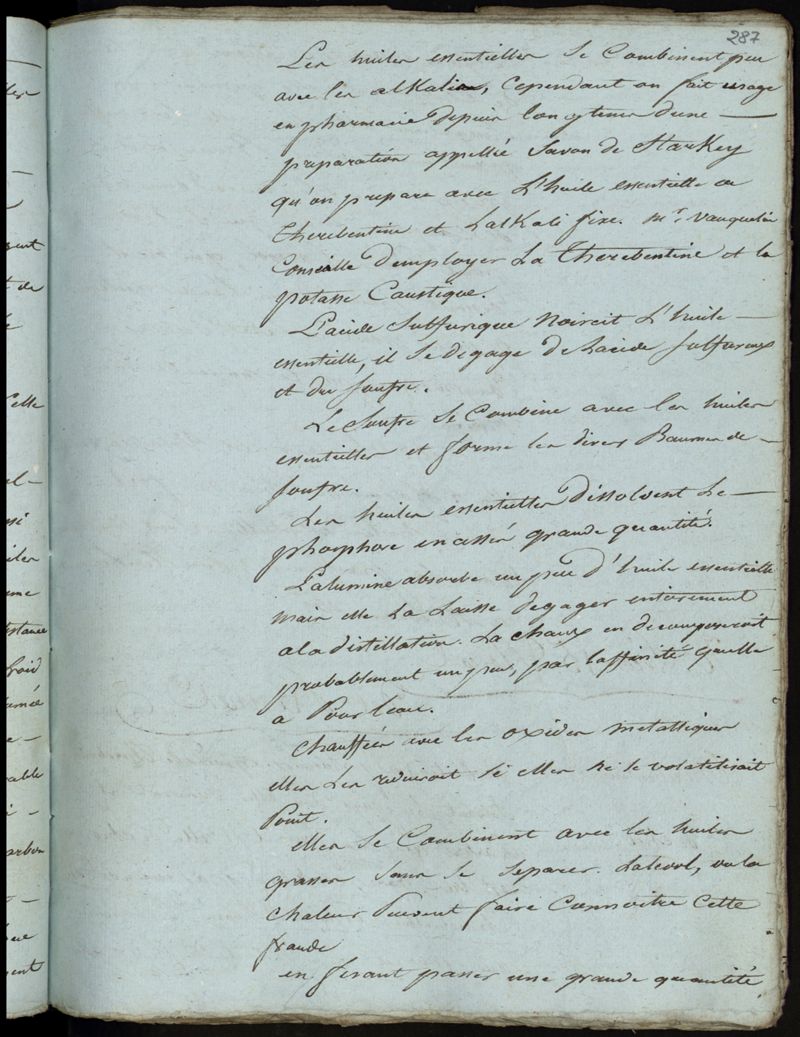 287
Les huiles essentielles se Combinent peu
avec les alkalis, Cependant on fait usage
en pharmacie depuis longtems dune
preparation appellée Savon de Starkey
qu'on prepare avec L'huile essentielle de
Therebentine et Lalkali fixe. Mr. Vauquelin
Conseille d'employer La Therebentine et la
potasse Caustique.
L'acide Sulfurique Noircit L'huile
essentielle, il Se degage de Lacide Sulfureux
et du soufre.
Le Soufre Se Combine avec les huiles
essentielles et forme les divers Baumes de
soufre.
Les huiles essentielles dissolvent Le
phosphore en assés grande quantité.
L'alumine absorbe un peu d'huile essentielle
mais elle La Laisse degager entierement
a la distillation. La chaux en decomposeroit
probablement un peu, par laffinité quelle
a Pour leau.
Chauffées avec les oxides metalliques
elles Les reduiroit Si elles ne se volatilisoit
Point.
elles Se Combinent avec les huiles
grasses sans se separer. Lalcool, ou la
chaleur Peuvent faire Connoitre Cette
fraude
en fesant passer une grande quantité
sent
t de
Celle
al-
iles
ume
stance
froid
e-
able
arbon
ent